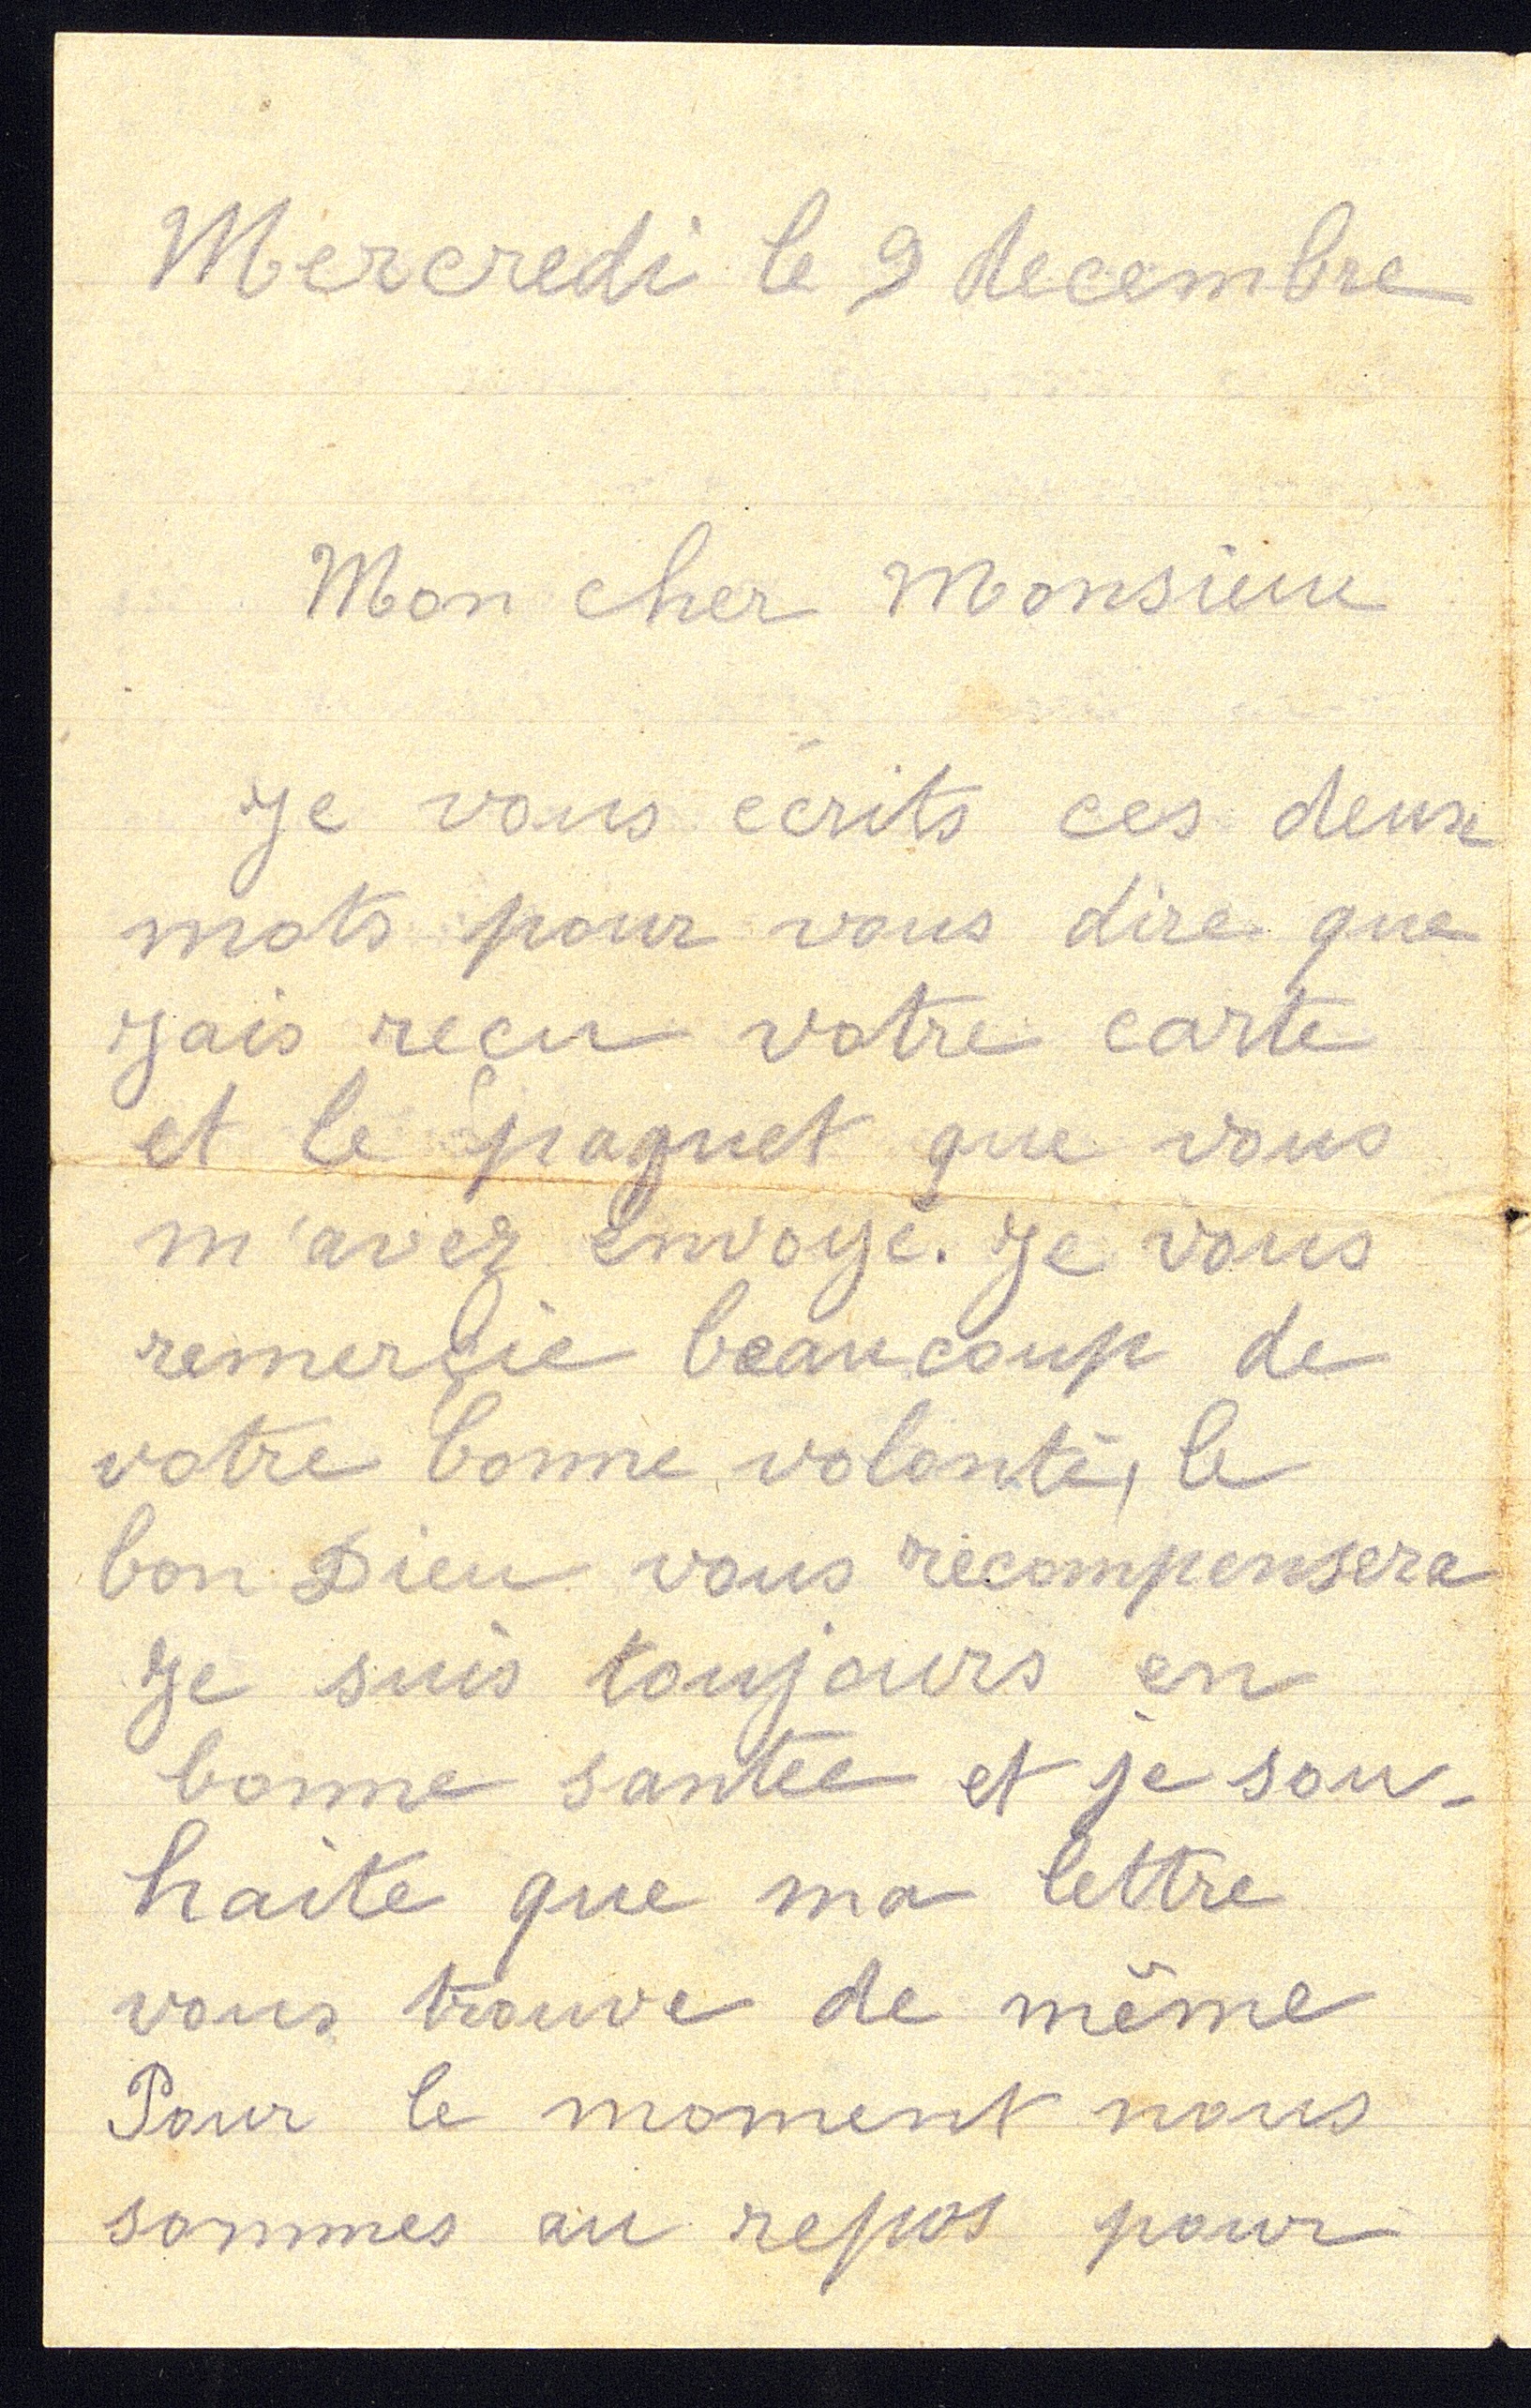 Mercredi le 9 decembre
Mon cher Monsieur
Je vous ecrits ces deux
mots pour vous dire que
Jais recu votre carte
et le paquet que vous
m'avez envoyé. Je vous
remerçie beaucoup de
votre bonne volonté, le
bon Dieu vous récompensera
Je suis toujours en
bonne santée et je sou-
haite que ma lettre
vous trouve de même
Pour le moment nous
sommes au repos pour